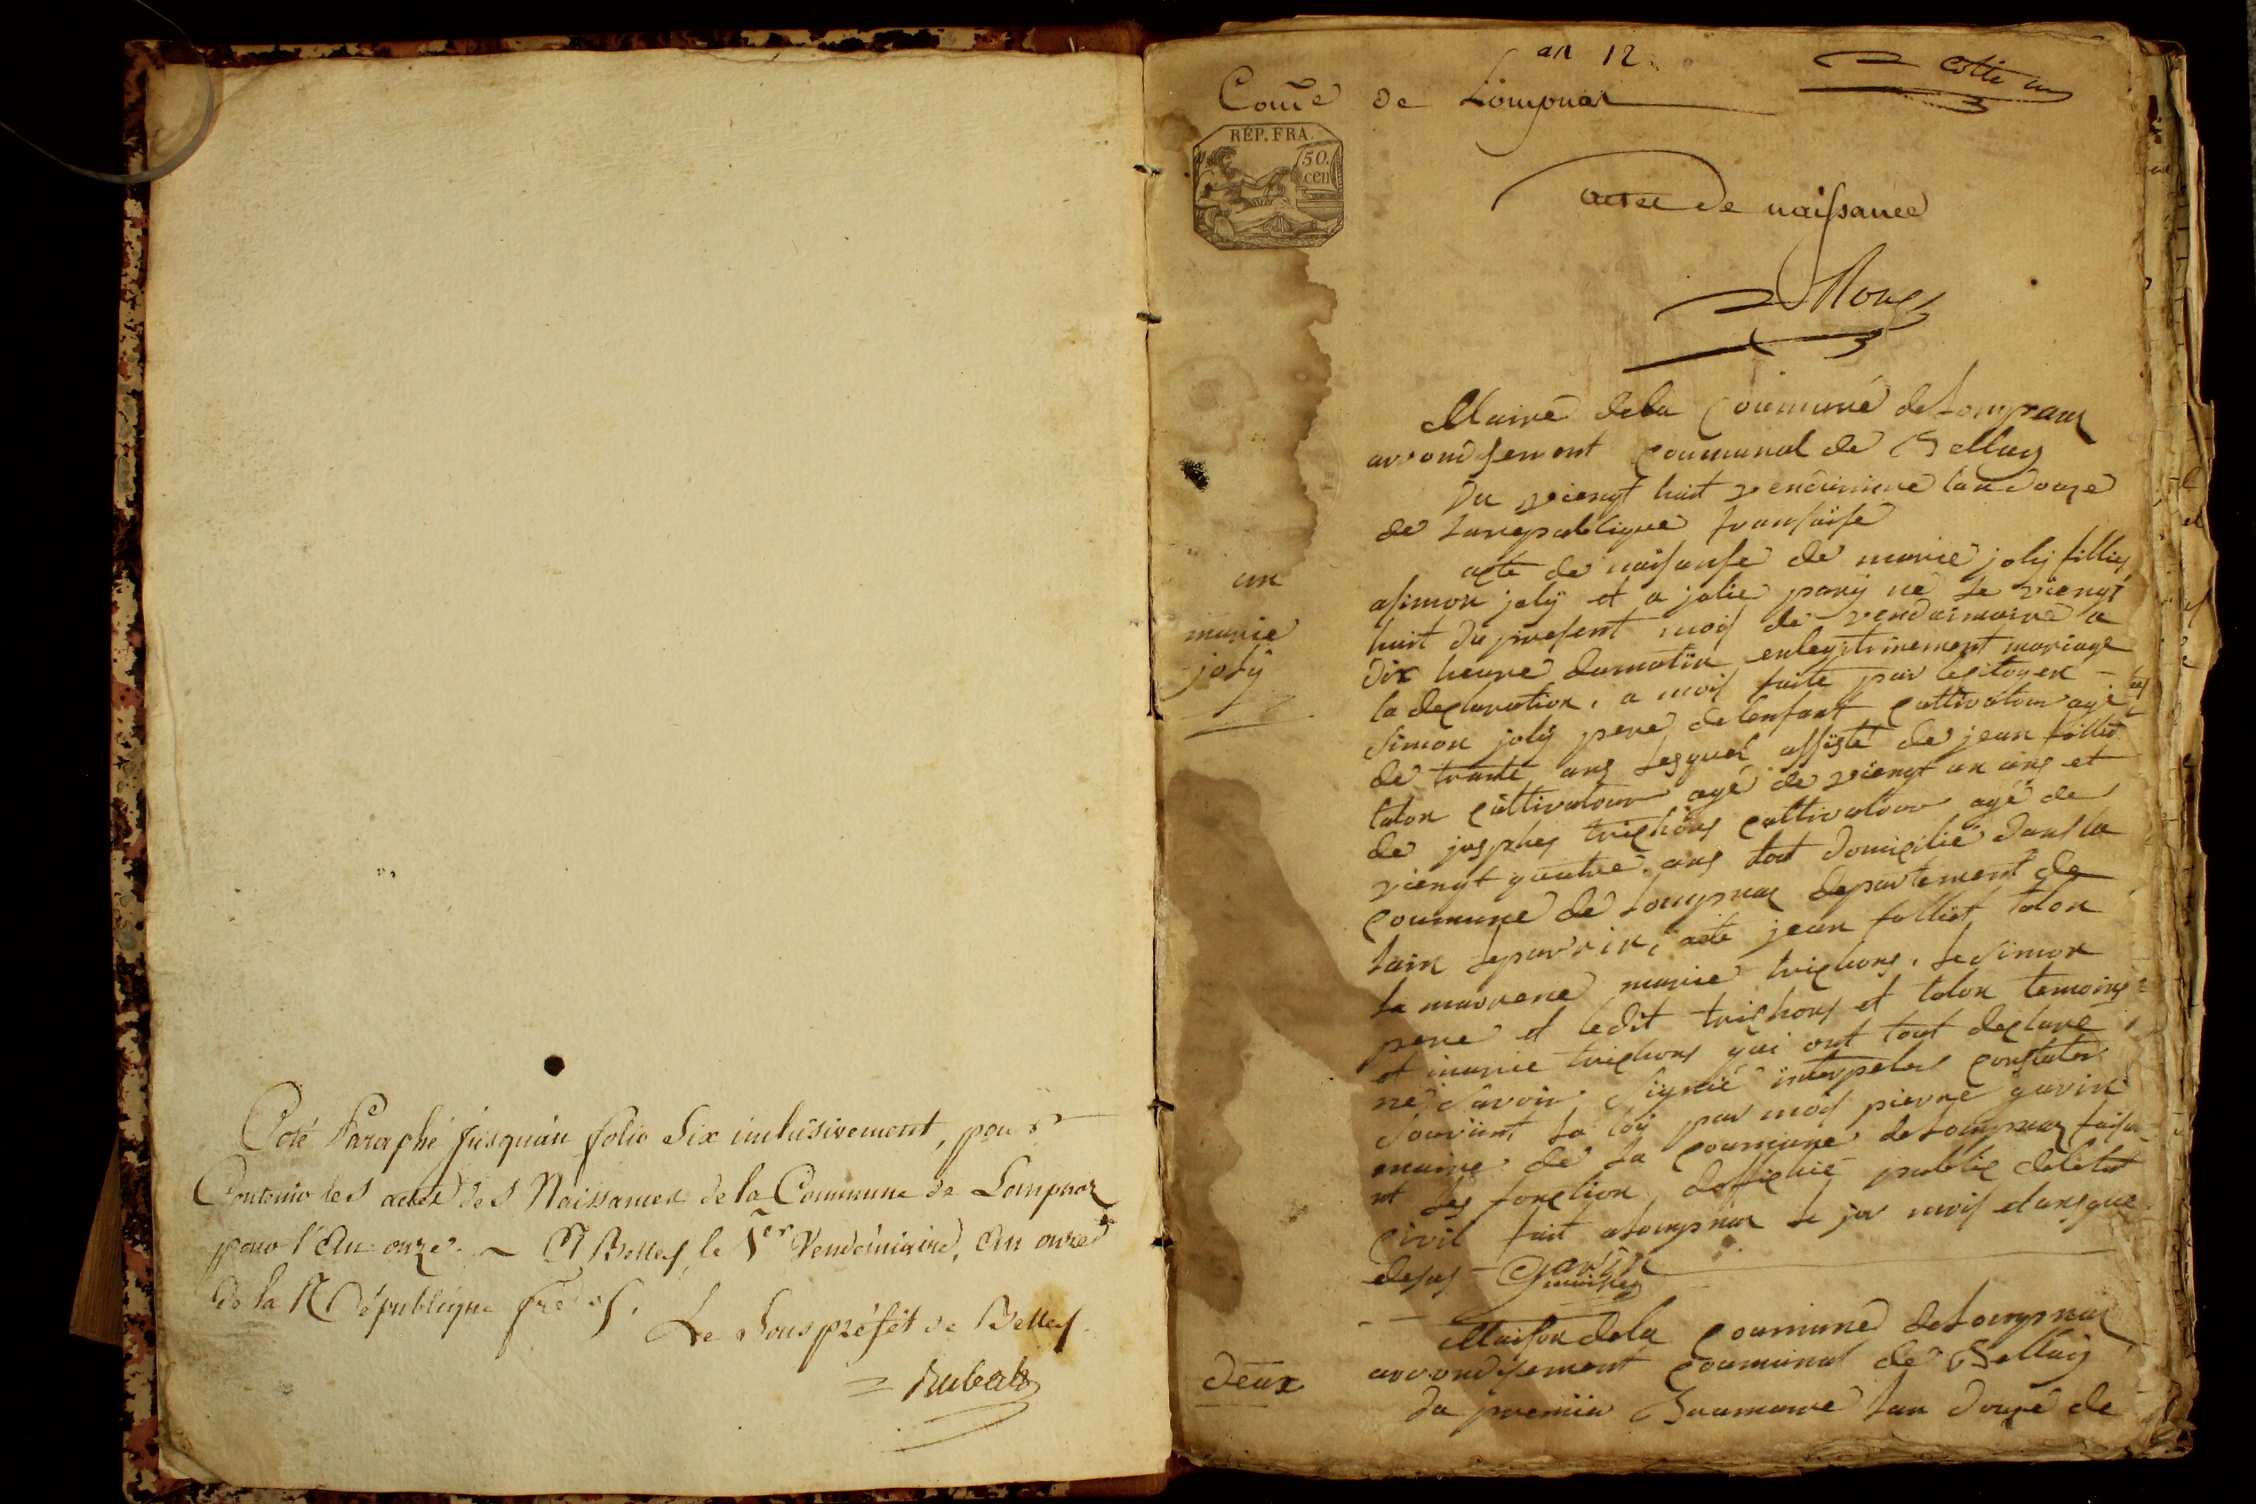 Coté Paraphé jusquau folio Six inclusivement, pour
Contenir les actes des Naissances de la Commune de Lompnaz
pour l'An onze. ~ A Belley le 1er Vendémiaire, An onze
de la République
Le Sous préfet de Belley
Rubat
an 12
cotte un
Com̃e de Lompnas
RÉP. FRA.
50.
cen
actes de naissance
Maire dela Coummune de Lompnaz
arrondisement coummunal de Bellay
Du viengt huit lan douze
de la republique fransaise
un
marie
joly
acte de naisanse de marie joly fillies
a simon joly et a julie pary né le viengt
huit du present mois de vendaimaire a
dix heure dumatin enlegitimement mariage
la declaration, a mois faite par le sitoyen
Simon joly pere de lenfant cultivatour agé
de trante ans lesquel assisté de jean folliet
talon cultivatour agé de viengt un ans et
de josphes trichons cultivatour agé de
viengt quatre ans tout domicilié dans la
coummune de Lompnaz departement de
lain leparrin, aete jean folliet talon
la marrene marie trichons, le simon
pere et ledit trichons et talon temoins
et marie trichons qui ont tout declare
ne savoir signié interpelés constater
souviant la loy par mois pierre gavin
maire de la coummune de Lompnaz faisa-
nt les fonction doffichié public deletat
civil fait a Lompnaz le jor mois et ans que
desus Gavin
maire
deux
Maison dela coummune de Lompnaz
arrondisement coummunal de Bellay
Du premiar Brumaire lan douze de